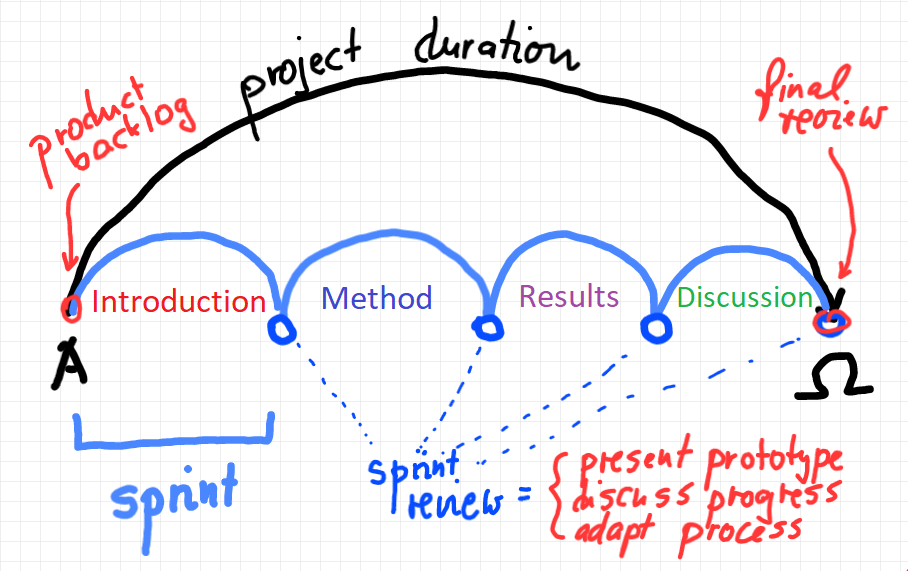 project duration
product
backlog
final
review
Introduction Method Results Discussion
A Ω
sprint
sprint
review = { present prototype
discuss progress
adapt process